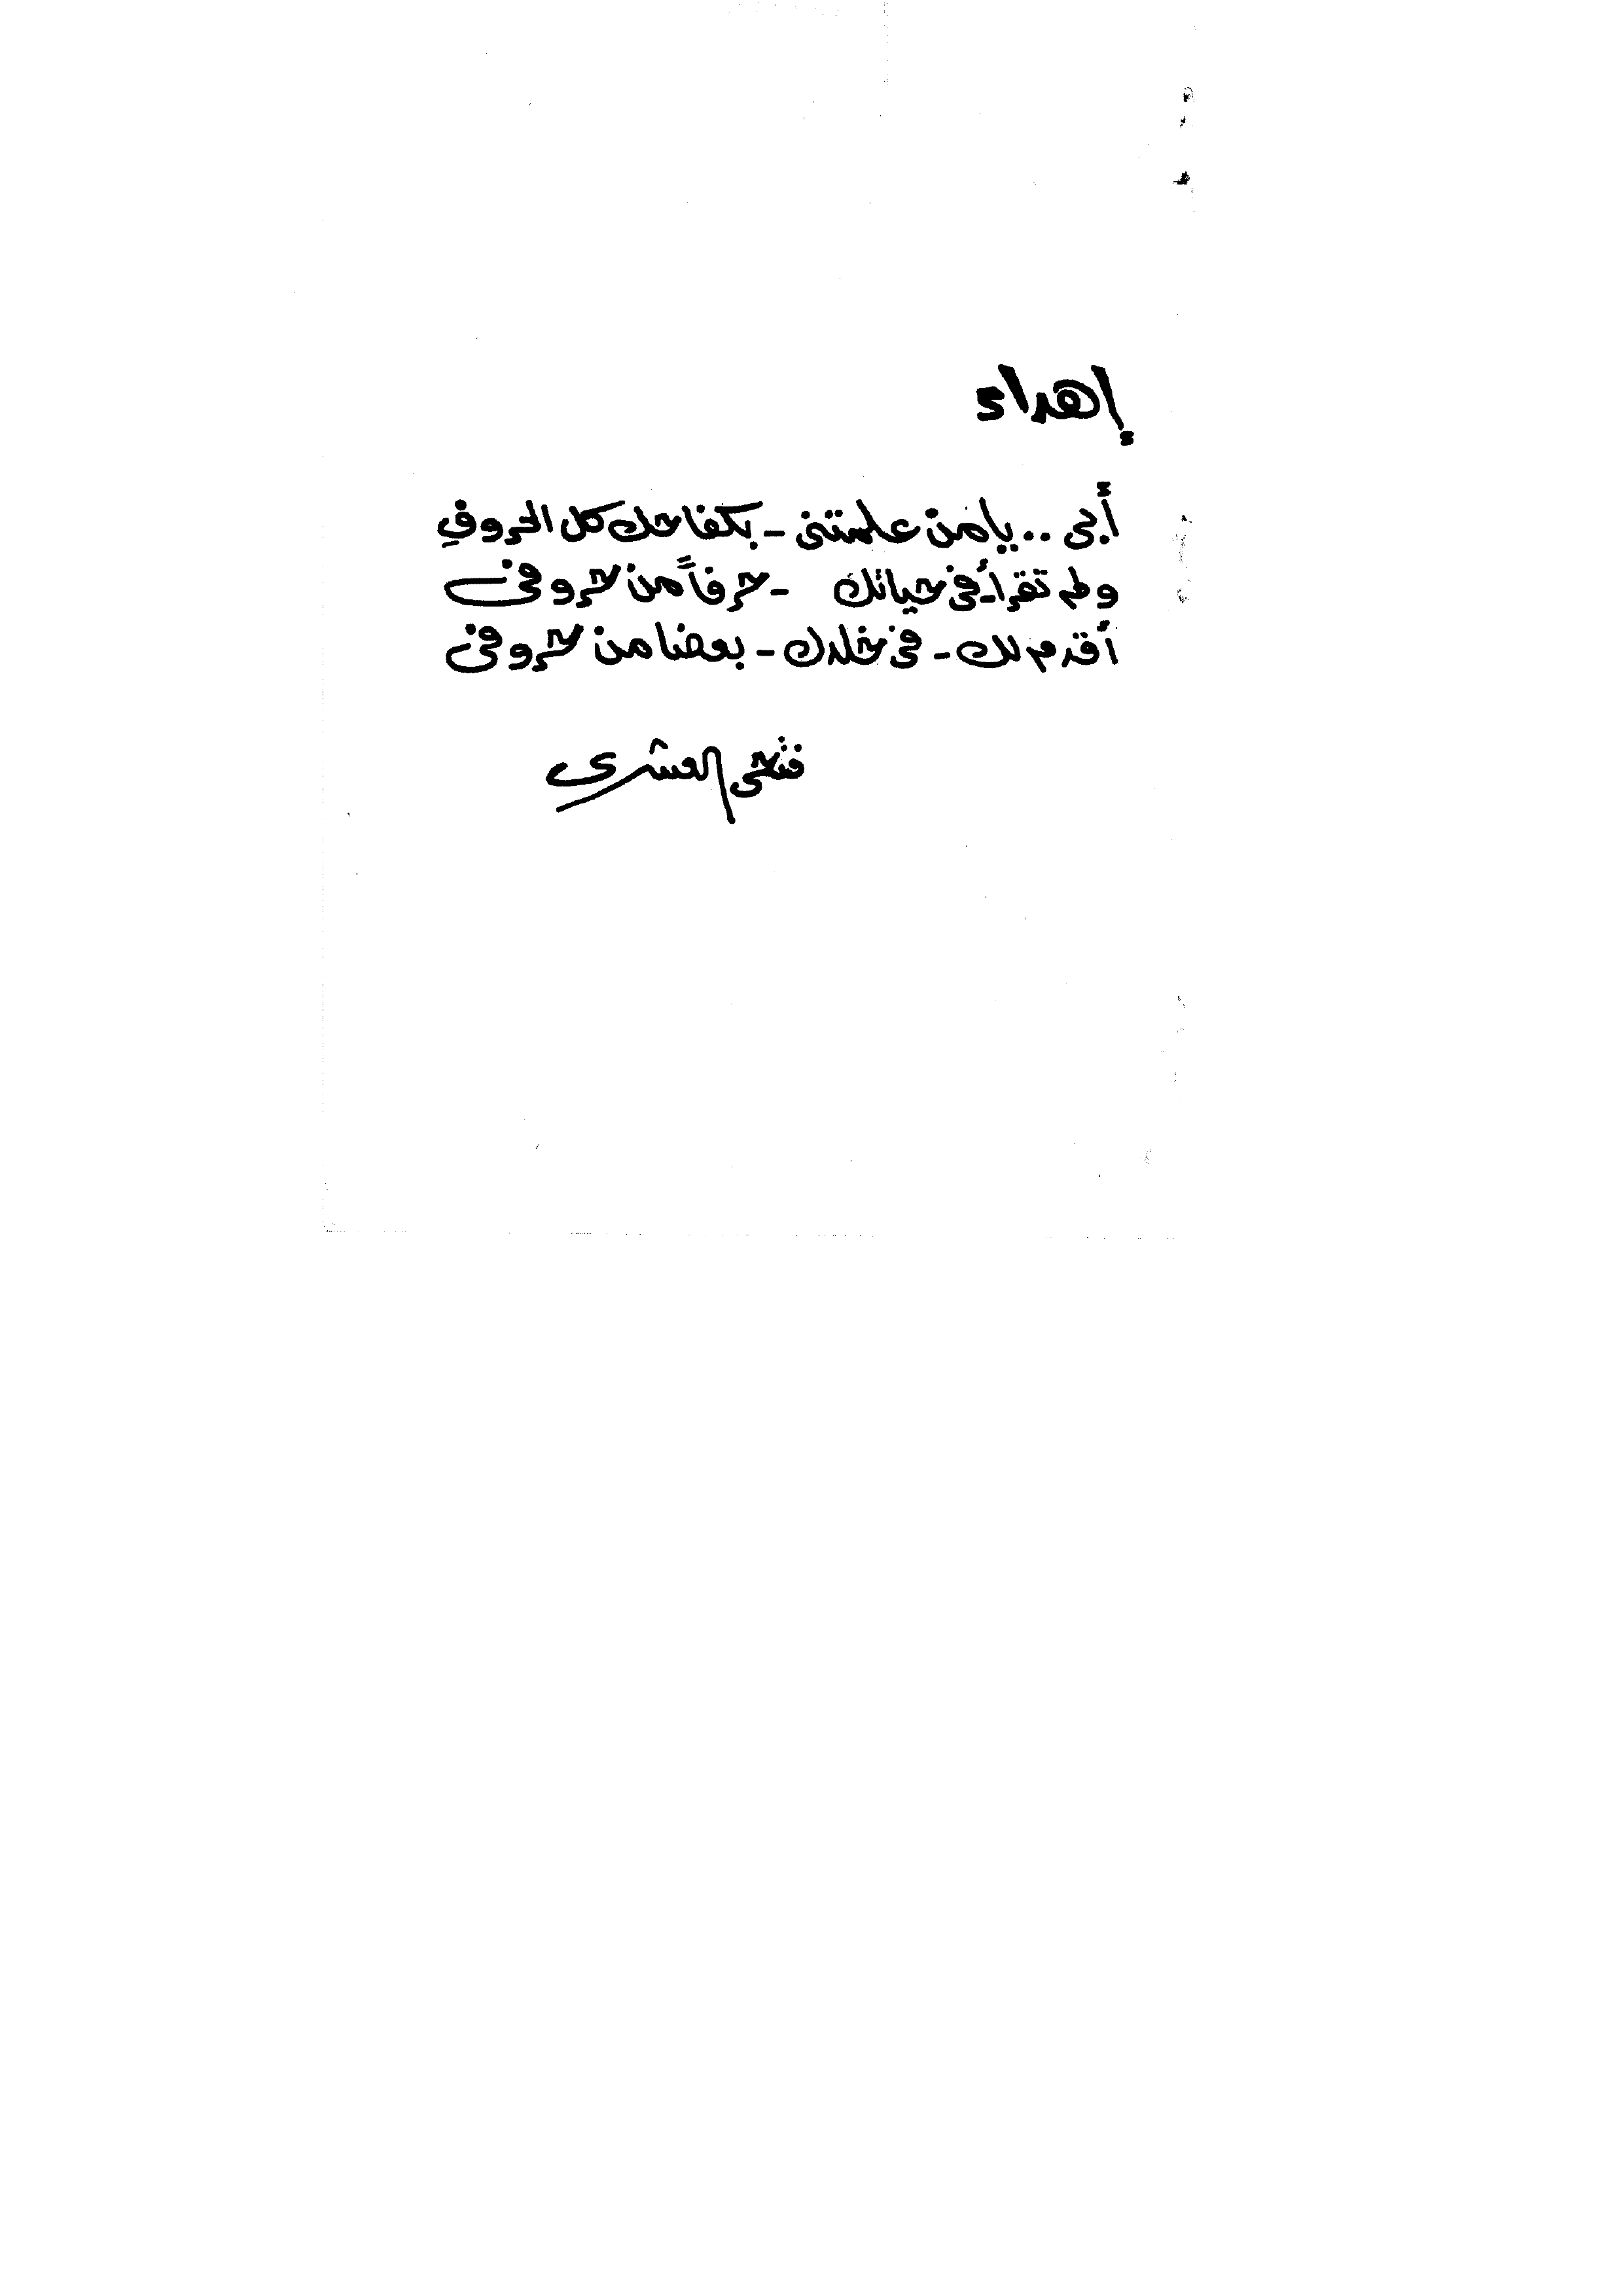 إهداء
أبى .. يا من علمتنى - بكفاحك كل الحروفِ
ولم تقرأ - فى حياتك - حرفاً من حروفى
أقدم لك - فى خلدك - بعضا من حروفى
فتحى العشرى